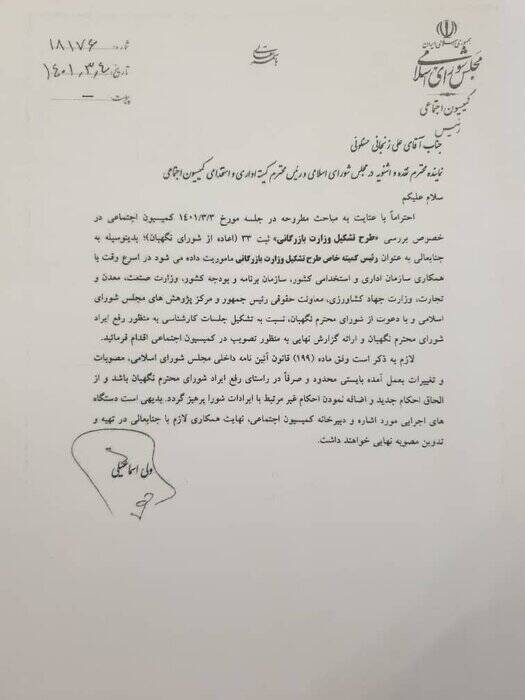 جمهوری اسلامی ایران
مجلس شورای اسلامی
کمیسیون اجتماعی
رئیس
باسمه تعالی
شماره: ۱۸۱۷۶
تاریخ: ۱۴۰۱,۳,۴
پیوست: –
جناب آقای علی زنجانی حسنلوئی
نماینده محترم نقده و اشنویه در مجلس شورای اسلامی و رئیس محترم کمیته اداری و استخدامی کمیسیون اجتماعی
سلام علیکم
احتراماً با عنایت به مباحث مطروحه در جلسه مورخ ۱۴۰۱/۳/۳ کمیسیون اجتماعی در
خصوص بررسی «طرح تشکیل وزارت بازرگانی» ثبت ۳۳ (اعاده از شورای نگهبان)؛ بدینوسیله به
جنابعالی به عنوان رئیس کمیته خاص طرح تشکیل وزارت بازرگانی ماموریت داده می شود در اسرع وقت با
همکاری سازمان اداری و استخدامی کشور، سازمان برنامه و بودجه کشور، وزارت صنعت، معدن و
تجارت، وزارت جهاد کشاورزی، معاونت حقوقی رئیس جمهور و مرکز پژوهش های مجلس شورای
اسلامی و با دعوت از شورای محترم نگهبان، نسبت به تشکیل جلسات کارشناسی به منظور رفع ایراد
شورای محترم نگهبان و ارائه گزارش نهایی به منظور تصویب در کمیسیون اجتماعی اقدام فرمائید.
لازم به ذکر است وفق ماده (۱۹۹) قانون آئین نامه داخلی مجلس شورای اسلامی، مصوبات
و تغییرات بعمل آمده بایستی محدود و صرفاً در راستای رفع ایراد شورای محترم نگهبان باشد و از
الحاق احکام جدید و اضافه نمودن احکام غیر مرتبط با ایرادات شورا پرهیز گردد. بدیهی است دستگاه
های اجرایی مورد اشاره و دبیرخانه کمیسیون اجتماعی، نهایت همکاری لازم با جنابعالی در تهیه و
تدوین مصوبه نهایی خواهند داشت.
ولی اسماعیلی